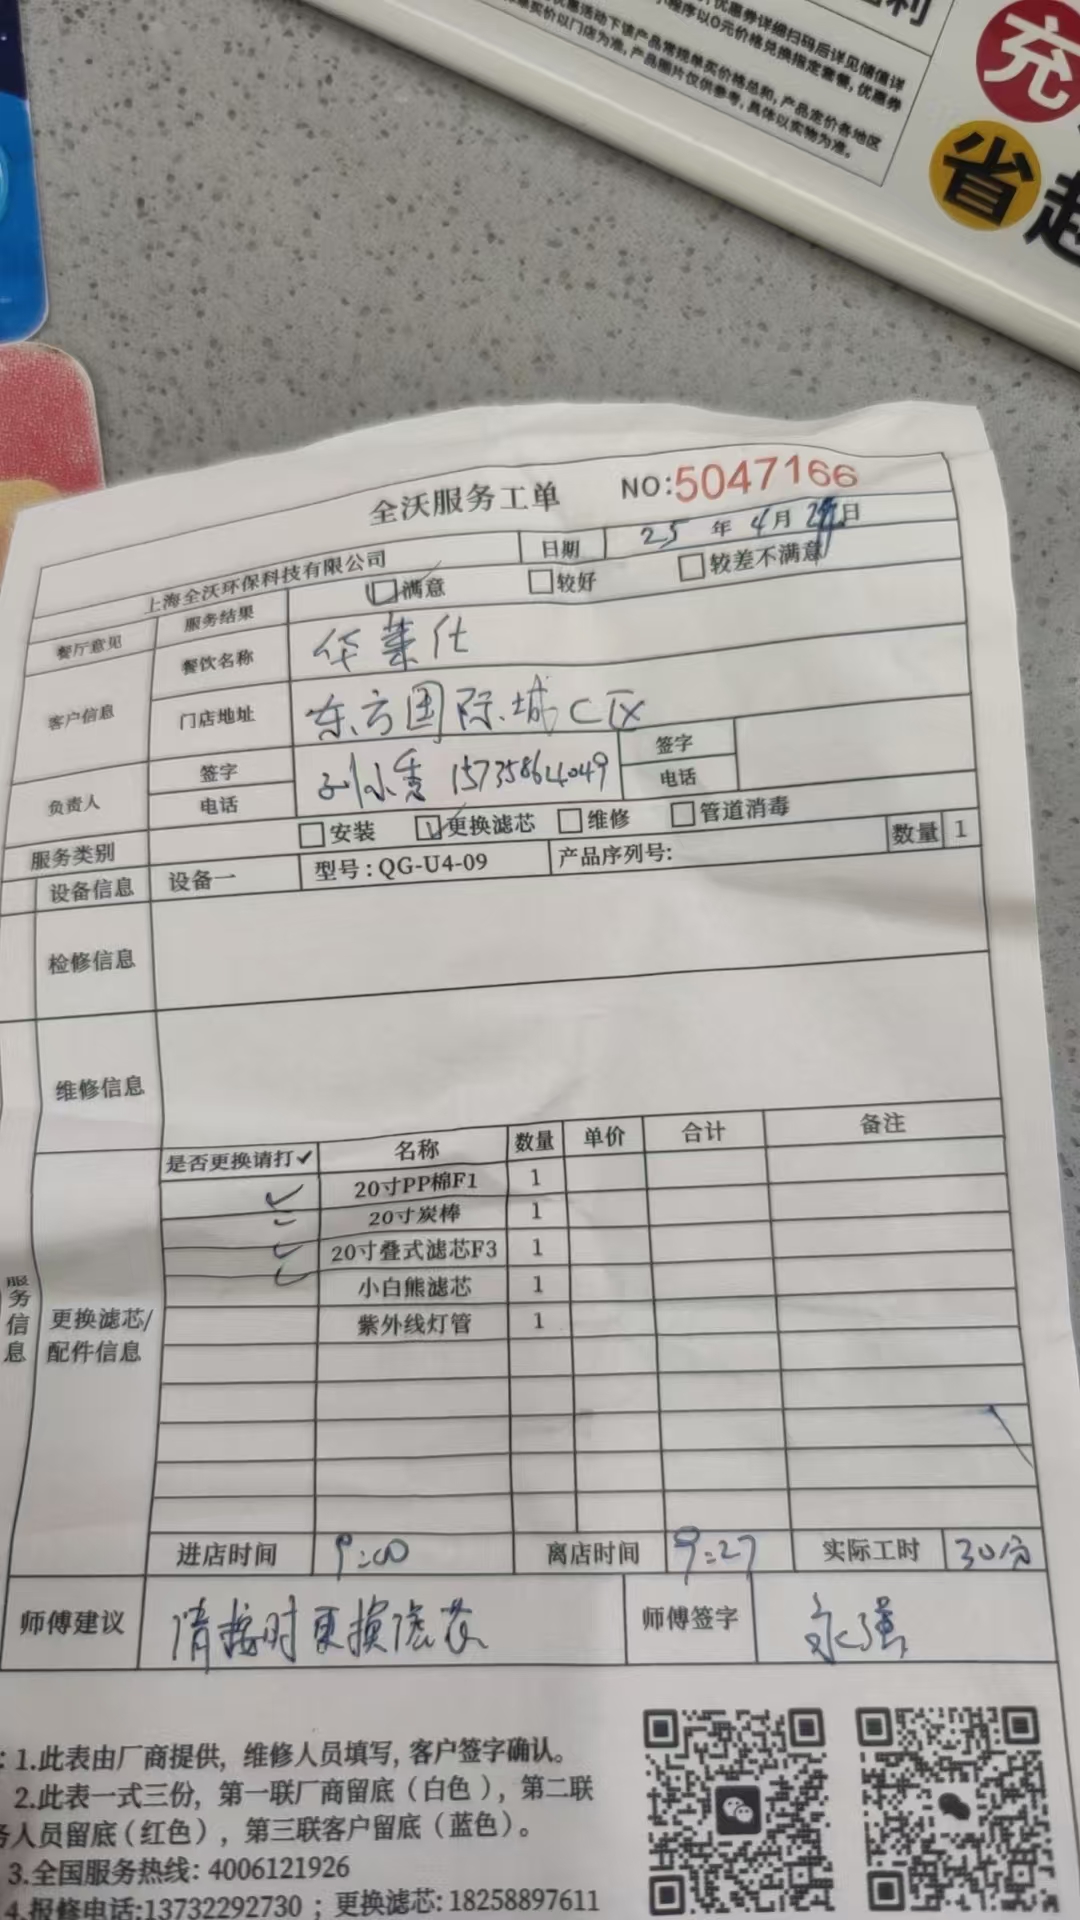 优惠券详细扫码后详见储值详
小程序以0元价格兑换指定套餐，优惠券
活动下该产品常规单买价格总和，产品定价各地区
买价以门店为准，产品图片仅供参考，具体以实物为准。
充
省超
全沃服务工单 NO:5047166
上海全沃环保科技有限公司 日期 25年4月日
餐厅意见 服务结果 满意 较好 较差不满意
客户信息 餐饮名称 华莱仕
门店地址 东方国际城C区
负责人 签字 电话 15735864049 签字 电话
服务类别 安装 更换滤芯 维修 管道消毒
设备信息 设备一 型号：QG-U4-09 产品序列号： 数量 1
检修信息
维修信息
服务信息
更换滤芯/配件信息
是否更换请打✓ 名称 数量 单价 合计 备注
✓ 20寸PP棉F1 1
✓ 20寸炭棒 1
✓ 20寸叠式滤芯F3 1
✓ 小白熊滤芯 1
紫外线灯管 1
进店时间 9:00 离店时间 9:27 实际工时 30分
师傅建议 请按时更换滤芯 师傅签字 永强
：1.此表由厂商提供，维修人员填写，客户签字确认。
2.此表一式三份，第一联厂商留底（白色），第二联
务人员留底（红色），第三联客户留底（蓝色）。
3.全国服务热线：4006121926
4.报修电话:13732292730；更换滤芯:18258897611